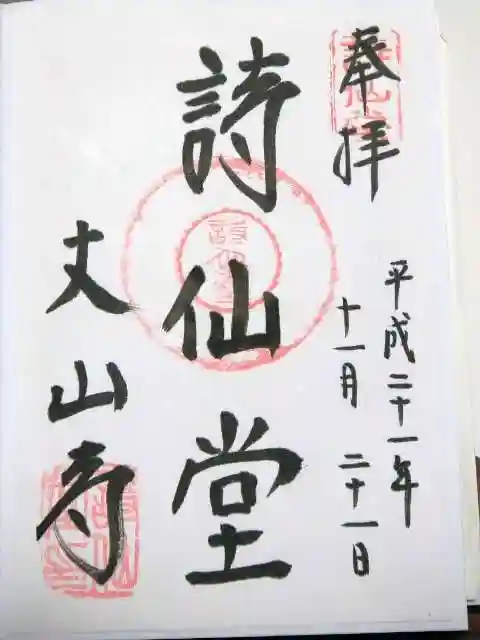 奉拝
平成二十一年
十一月 二十一日
詩仙堂
丈山寺